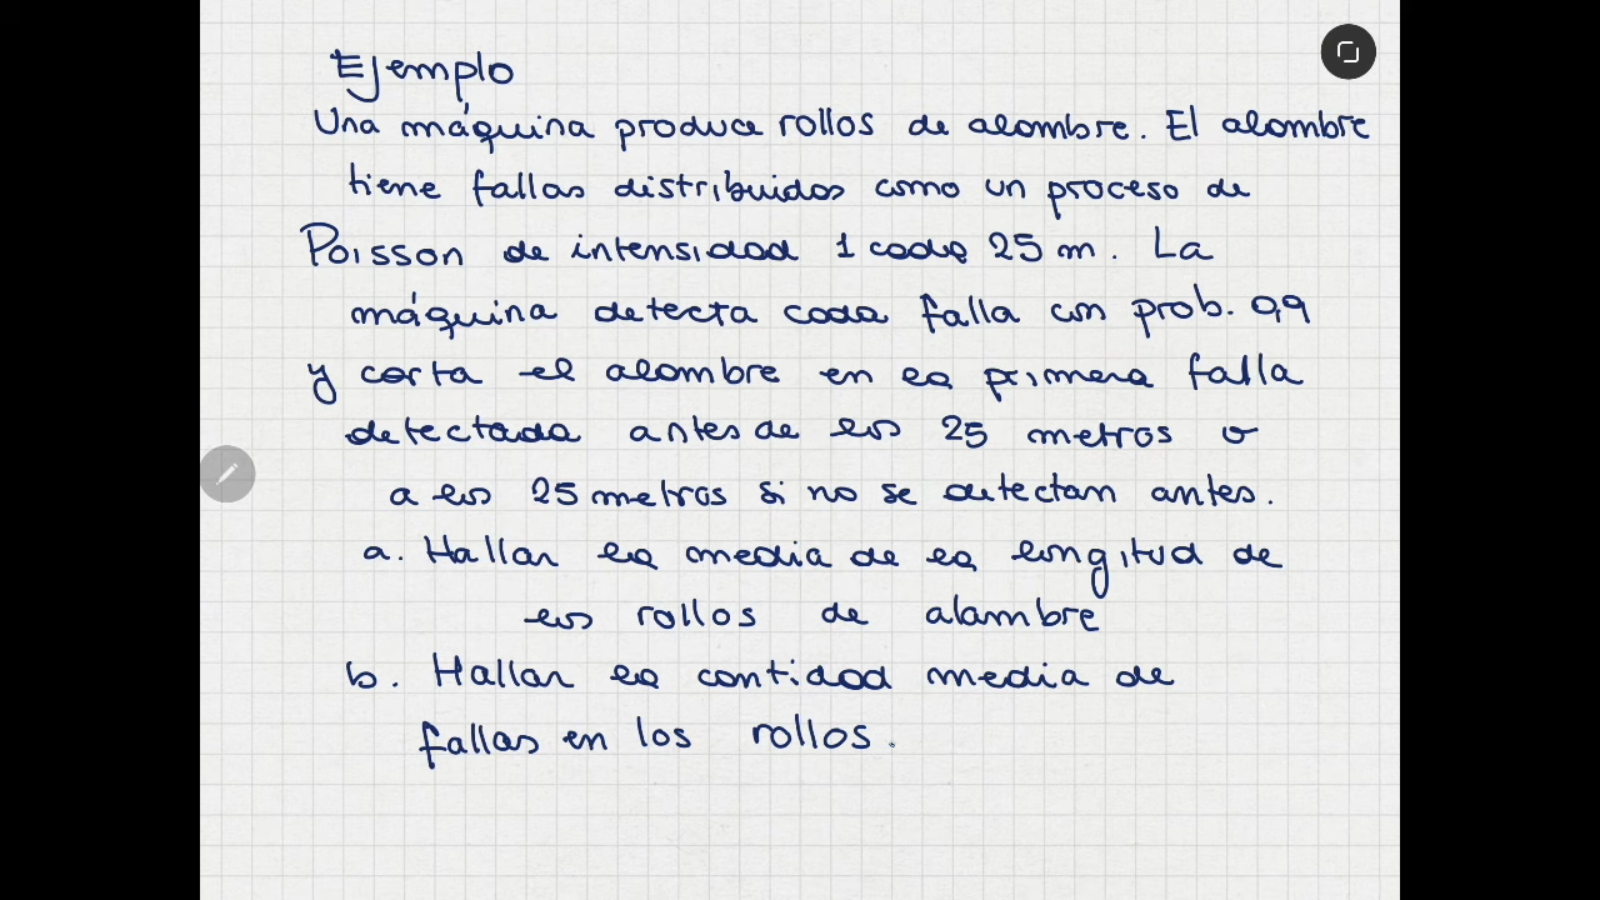 Ejemplo
Una máquina produce rollos de alambre. El alambre
tiene fallas distribuidas como un proceso de
Poisson de intensidad 1 cada 25 m. La
máquina detecta cada falla con prob. 0,9
y corta el alambre en la primera falla
detectada antes de los 25 metros o
a los 25 metros si no se detectan antes.
a. Hallar la media de la longitud de
los rollos de alambre
b. Hallar la cantidad media de
fallas en los rollos.